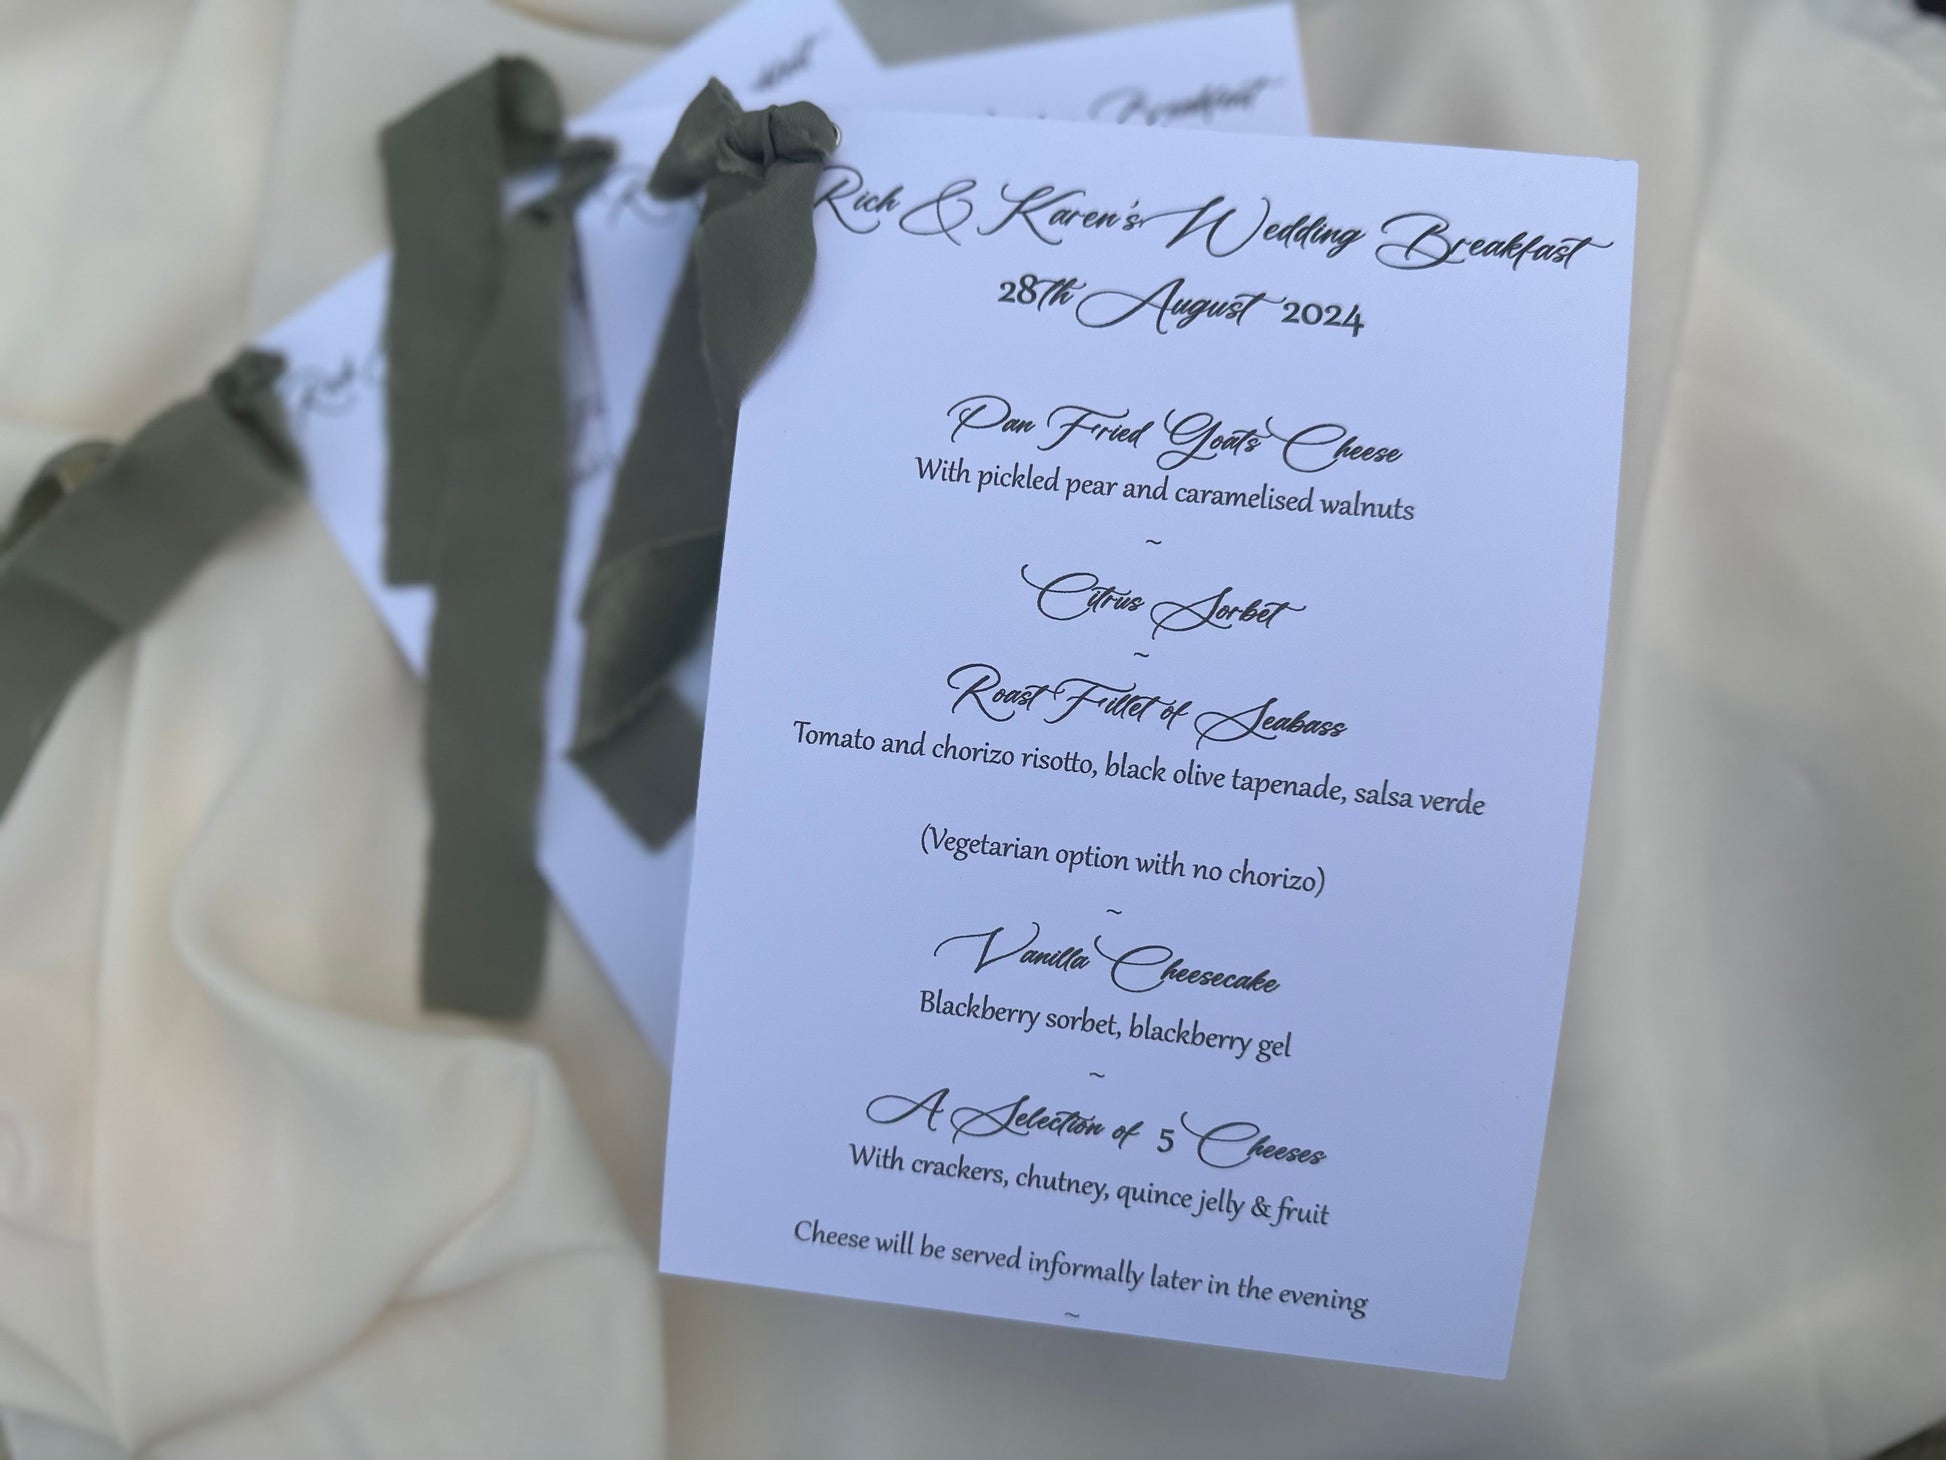 Breakfast
Rich & Karen's Wedding Breakfast
28th August 2024
Pan Fried Goats Cheese
With pickled pear and caramelised walnuts
~
Citrus Sorbet
~
Roast Fillet of Seabass
Tomato and chorizo risotto, black olive tapenade, salsa verde
(Vegetarian option with no chorizo)
~
Vanilla Cheesecake
Blackberry sorbet, blackberry gel
~
A Selection of 5 Cheeses
With crackers, chutney, quince jelly & fruit
Cheese will be served informally later in the evening
~
Rich